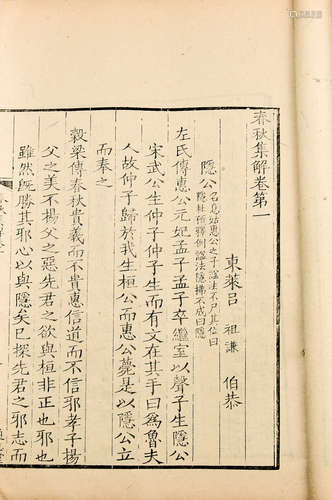 春秋集解卷第一
東萊呂 祖謙 伯恭
隱公 名息姑惠公之子謚法不尸其位曰
隱杜預釋例謚法隱拂不成曰隱
左氏傳惠公元妃孟子孟子卒繼室以聲子生隱公
宋武公生仲子仲子生而有文在其手曰為魯夫
人故仲子歸於我生桓公而惠公薨是以隱公立
而奉之
穀梁傳春秋貴義而不貴惠信道而不信邪孝子揚
父之美不揚父之惡先君之欲與桓非正也邪也
雖然既勝其邪心以與隱矣已探先君之邪志而